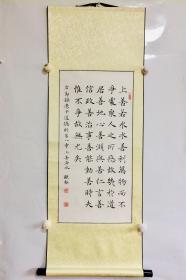 上善若水水善利萬物而不
爭處衆人之所惡故幾於道
居善地心善淵與善仁言善
信政善治事善能動善時夫
惟不爭故無尤矣
老子道德經第八章上善若水